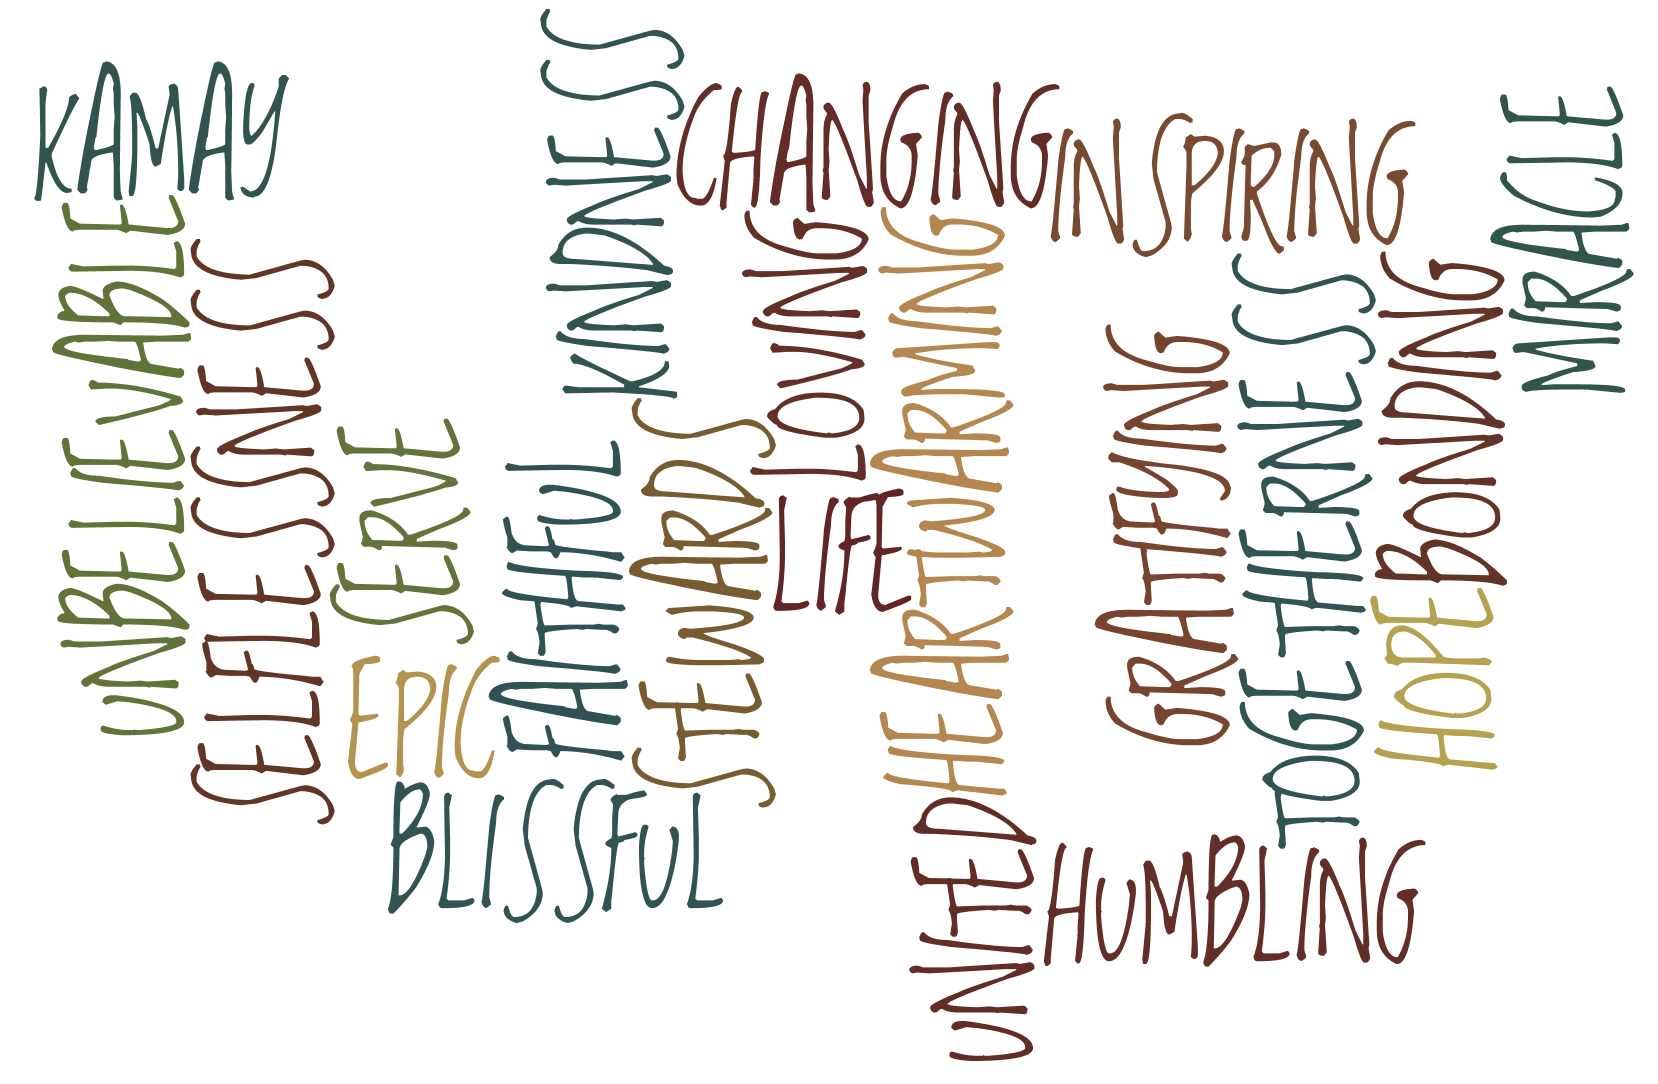 KAMAY
UNBELIEVABLE
SELFLESSNESS
SERVE
EPIC
BLISSFUL
FAITHFUL
KINDNESS
STEWARDS
CHANGING
LOVING
LIFE
HEARTWARMING
UNITED
HUMBLING
INSPIRING
GRATIFYING
TOGETHERNESS
BONDING
HOPE
MIRACLE